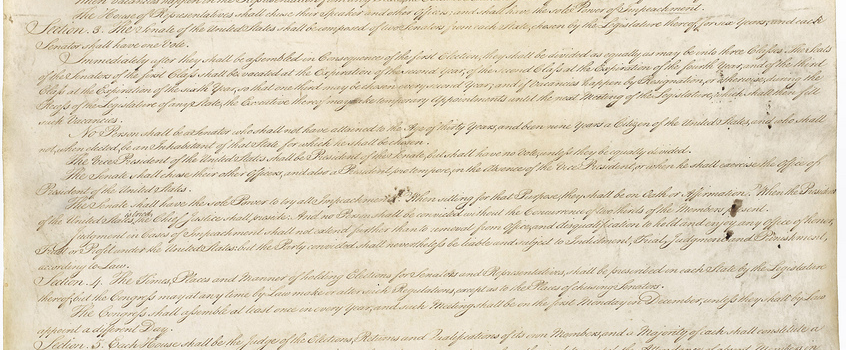 the House of Representatives shall chuse their Speaker and other Officers; and shall have the sole Power of Impeachment.
Section. 3. The Senate of the United States shall be composed of two Senators from each State, chosen by the Legislature thereof, for six Years; and each
Senator shall have one Vote.
Immediately after they shall be assembled in Consequence of the first Election, they shall be divided as equally as may be into three Classes. The Seats
of the Senators of the first Class shall be vacated at the Expiration of the second Year, of the second Class at the Expiration of the fourth Year, and of the third
Class at the Expiration of the sixth Year, so that one third may be chosen every second Year; and if Vacancies happen by Resignation, or otherwise, during the
Recess of the Legislature of any State, the Executive thereof may make temporary Appointments until the next Meeting of the Legislature, which shall then fill
such Vacancies.
No Person shall be a Senator who shall not have attained to the Age of thirty Years, and been nine Years a Citizen of the United States, and who shall
not, when elected, be an Inhabitant of that State for which he shall be chosen.
The Vice President of the United States shall be President of the Senate, but shall have no Vote, unless they be equally divided.
The Senate shall chuse their other Officers, and also a President pro tempore, in the Absence of the Vice President, or when he shall exercise the Office of
President of the United States.
The Senate shall have the sole Power to try all Impeachments. When sitting for that Purpose, they shall be on Oath or Affirmation. When the President
of the United States is tried, the Chief Justice shall preside: And no Person shall be convicted without the Concurrence of two thirds of the Members present.
Judgment in Cases of Impeachment shall not extend further than to removal from Office, and disqualification to hold and enjoy any Office of honor,
Trust or Profit under the United States: but the Party convicted shall nevertheless be liable and subject to Indictment, Trial, Judgment and Punishment,
according to Law.
Section. 4. The Times, Places and Manner of holding Elections for Senators and Representatives, shall be prescribed in each State by the Legislature
thereof; but the Congress may at any time by Law make or alter such Regulations, except as to the Places of chusing Senators.
The Congress shall assemble at least once in every Year, and such Meeting shall be on the first Monday in December, unless they shall by Law
appoint a different Day.
Section. 5. Each House shall be the Judge of the Elections, Returns and Qualifications of its own Members, and a Majority of each shall constitute a